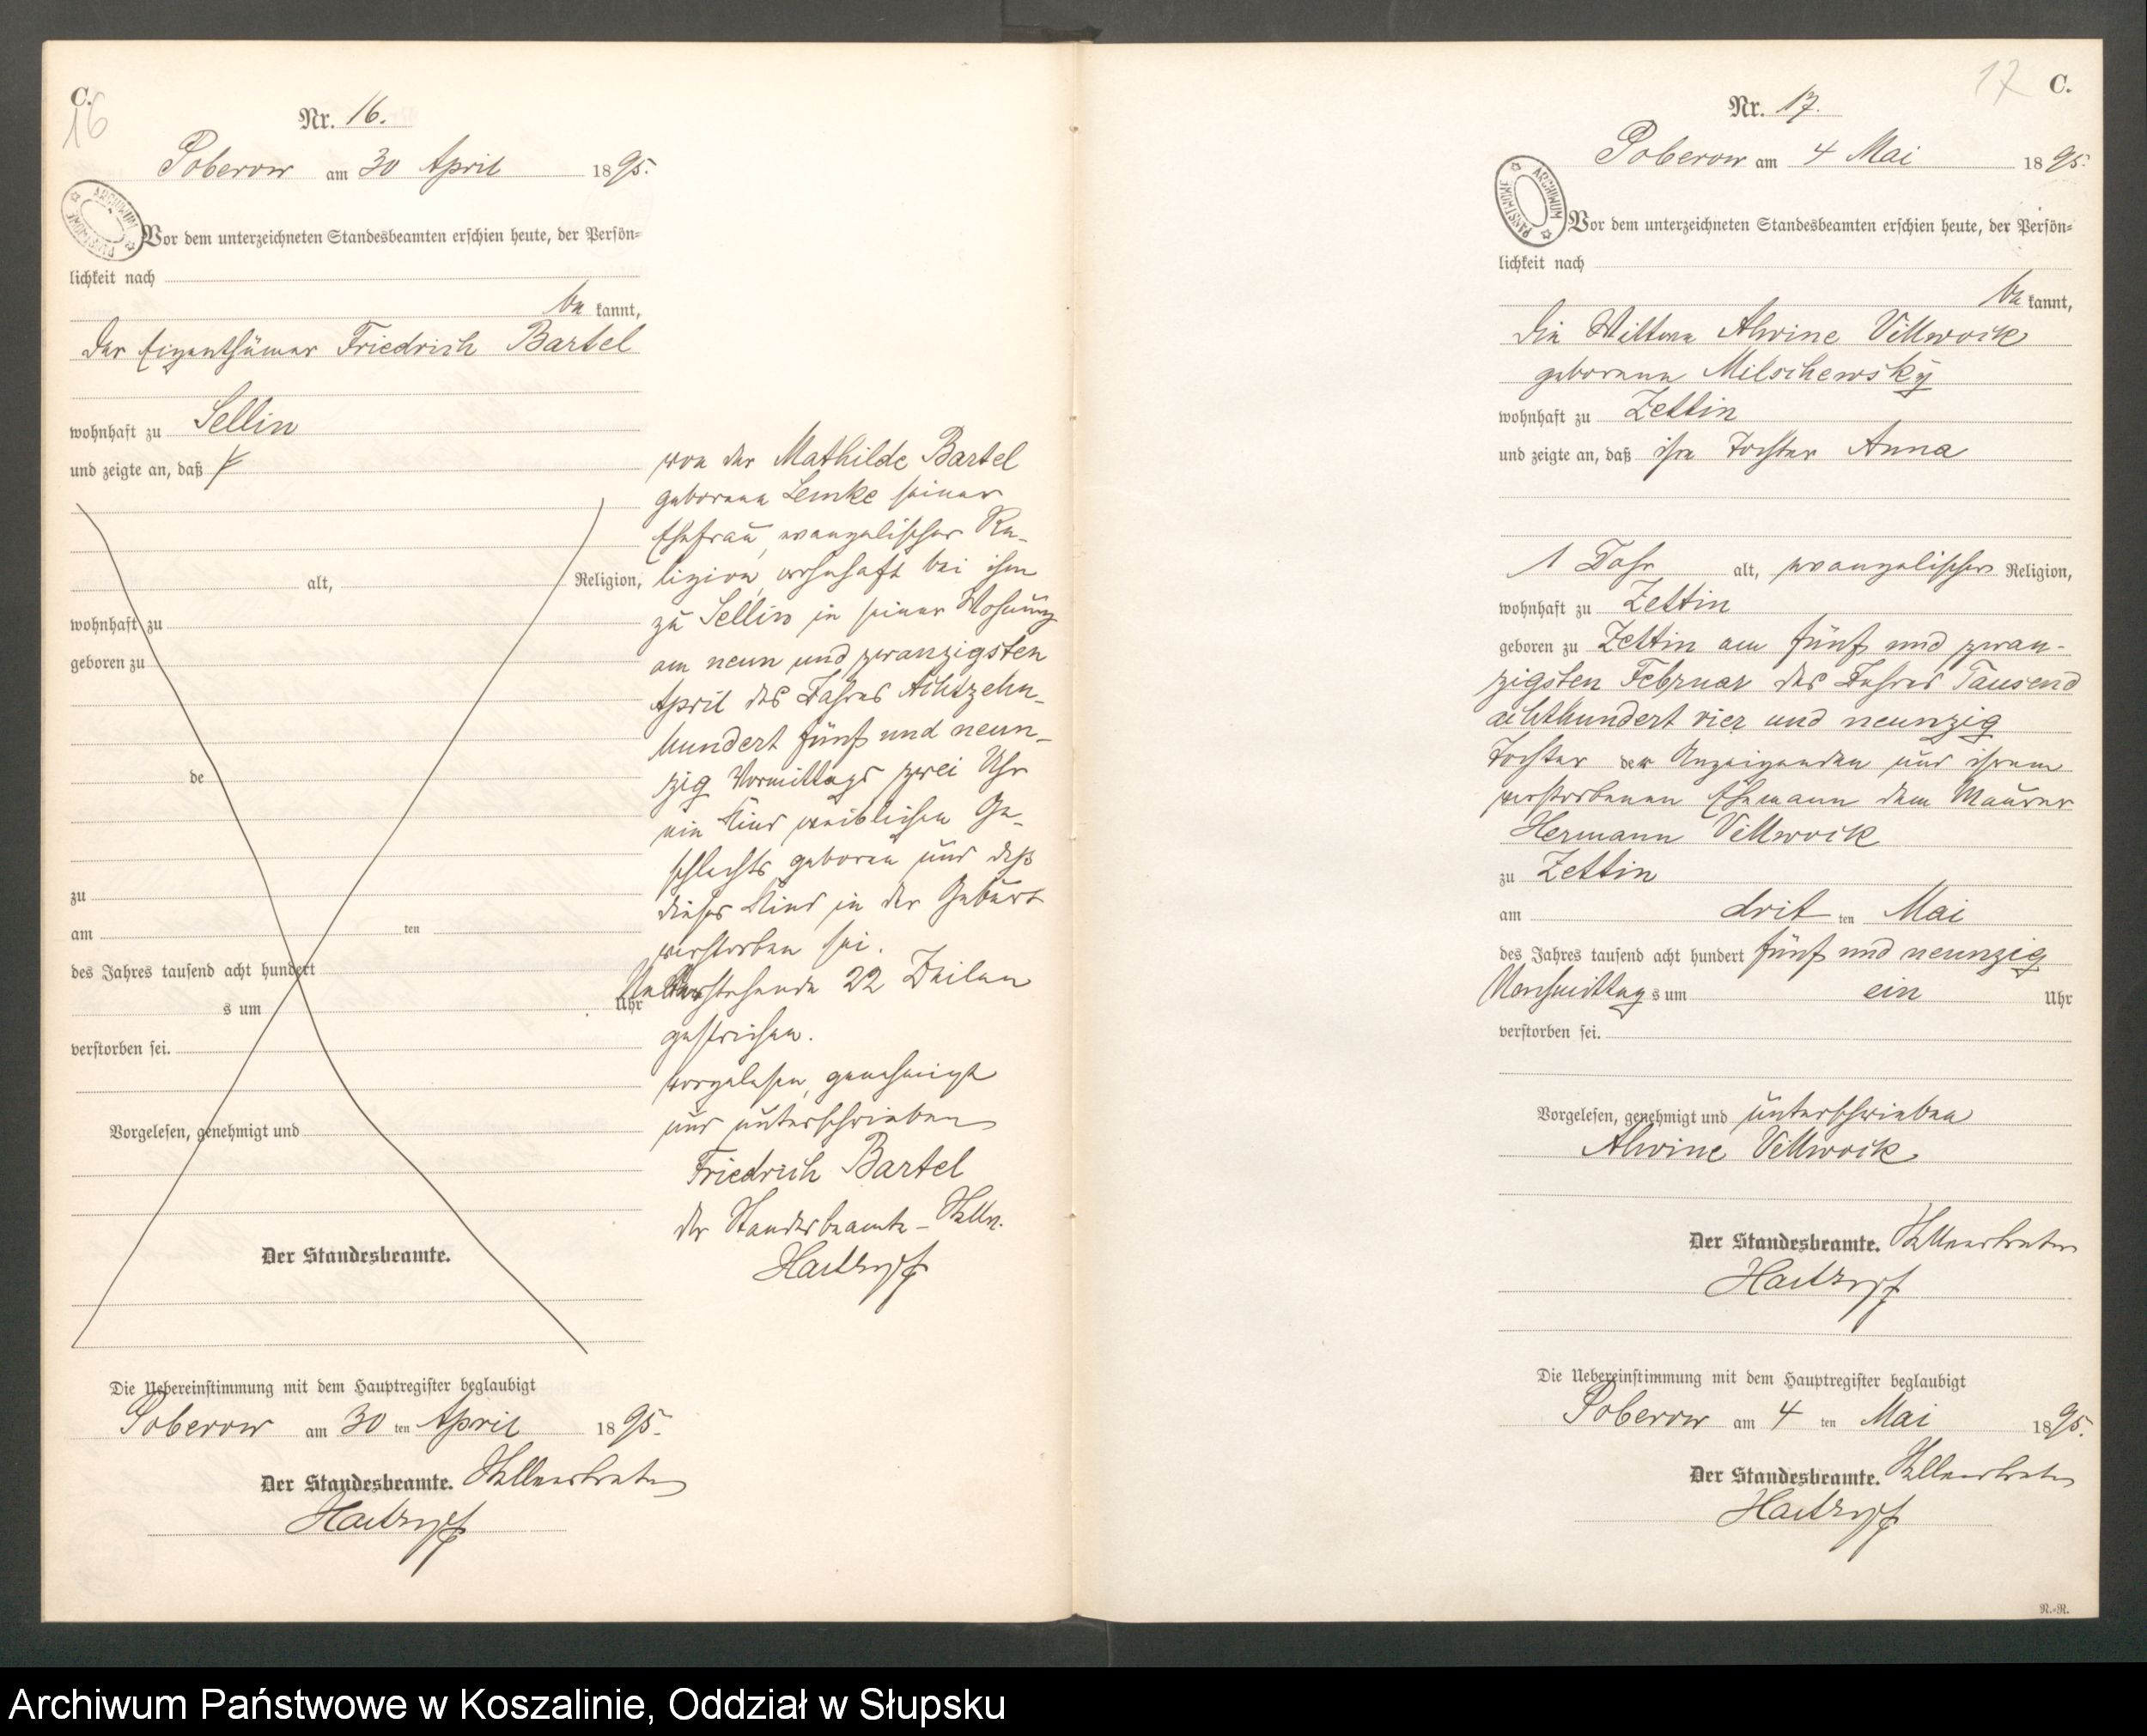 C.
16
Nr. 16.
Poberow am 30 April 1895.
ARCHIWUM PAŃSTWOWE
Vor dem unterzeichneten Standesbeamten erschien heute, der Persön-
lichkeit nach
be kannt,
der Eigenthümer Friedrich Bartel
wohnhaft zu Sellin
und zeigte an, daß
alt, Religion,
wohnhaft zu
geboren zu
de
zu
am ten
des Jahres tausend acht hundert
s um Uhr
verstorben sei.
Vorgelesen, genehmigt und
Der Standesbeamte.
von der Mathilde Bartel
geborene Lemke seiner
Ehefrau, evangelischer Re-
ligion, wohnhaft bei ihm
zu Sellin in seiner Wohnung
am neun und zwanzigsten
April des Jahres Achtzehn-
hundert fünf und neun-
zig Vormittags zwei Uhr
ein Kind weiblichen Ge-
schlechts geboren und daß
dieses Kind in der Geburt
verstorben sei.
22 Zeilen
gestrichen.
vorgelesen, genehmigt
und unterschrieben
Friedrich Bartel
der Standesbeamte – Stellv.
Die Uebereinstimmung mit dem Hauptregister beglaubigt
Poberow am 30 ten April 1895.
Der Standesbeamte. Stellvertreter
17 C.
Nr. 17.
Poberow am 4 Mai 1895.
ARCHIWUM PAŃSTWOWE
Vor dem unterzeichneten Standesbeamten erschien heute, der Persön-
lichkeit nach
be kannt,
die Wittwe Alwine Villwock
geborene Milschewsky
wohnhaft zu Zettin
und zeigte an, daß ihre Tochter Anna
1 Jahr alt, evangelischer Religion,
wohnhaft zu Zettin
geboren zu Zettin am fünf und zwan-
zigsten Februar des Jahres Tausend
achthundert vier und neunzig
Tochter der Anzeigenden und ihrem
verstorbenen Ehemann dem Maurer
Hermann Villwock
zu Zettin
am drit ten Mai
des Jahres tausend acht hundert fünf und neunzig
Nachmittag s um ein Uhr
verstorben sei.
Vorgelesen, genehmigt und unterschrieben
Alwine Villwock
Der Standesbeamte. Stellvertreter
Die Uebereinstimmung mit dem Hauptregister beglaubigt
Poberow am 4 ten Mai 1895.
Der Standesbeamte. Stellvertreter
N.-R.
Archiwum Państwowe w Koszalinie, Oddział w Słupsku